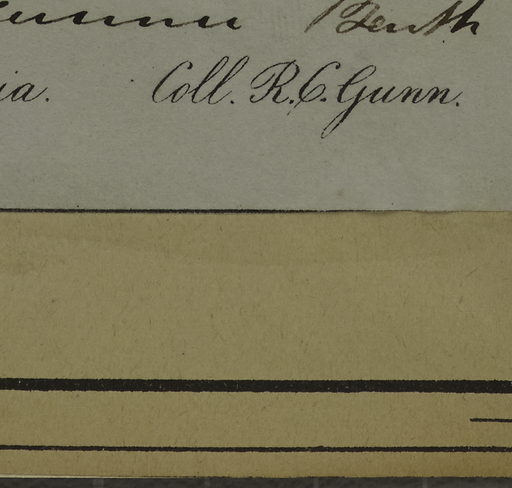 Benth
ia. Coll. R.C. Gunn.